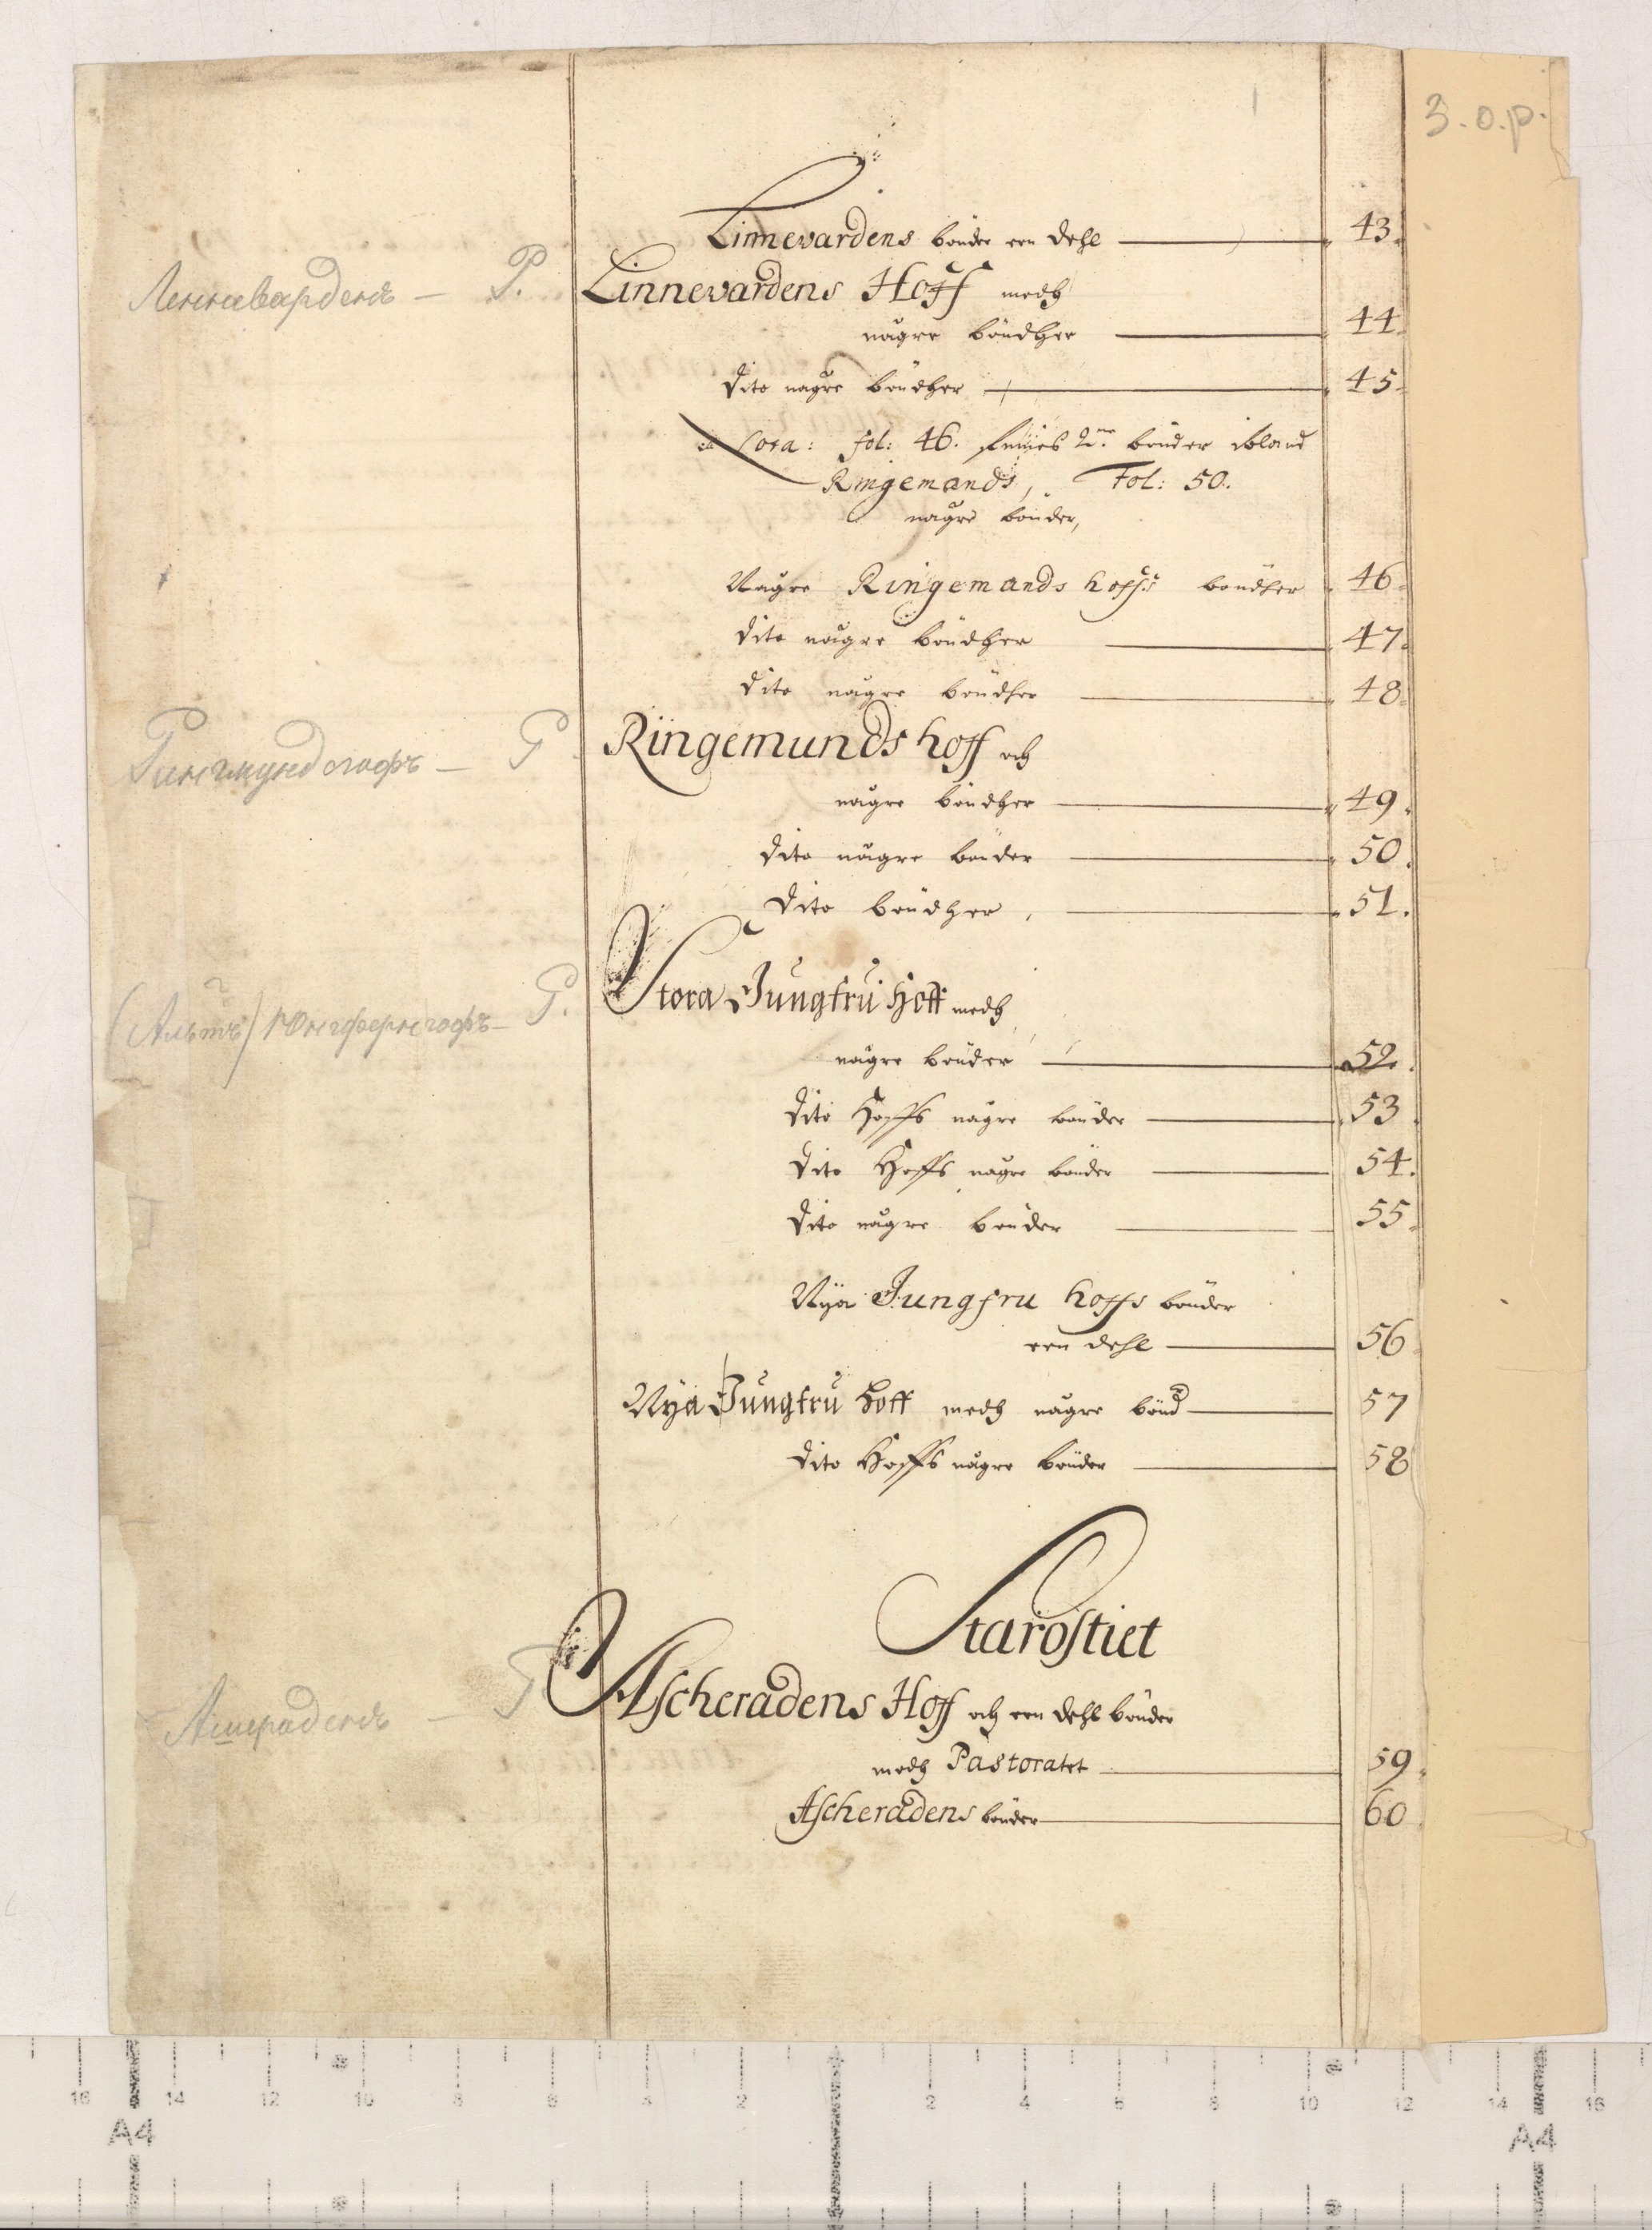 3. o. p.
Linnevardens bönder een dehl 43.
Леннаварденъ — P. Linnevardens Hoff medh
någre böndher 44.
dito någre böndher 45.
fol: 46. finnes 2ne bönder ibland
Ringemands, Fol: 50.
någre bönder,
Någre Ringemands hoffs böndher 46.
dito någre böndher 47.
dito någre böndher 48.
Рингмундсгофъ — P Ringemunds hoff och
någre böndher 49.
dito någre bönder 50.
Dito böndher, 51.
(Альтъ?) Юнгфернгофъ — P. Stora Jungfru Hoff medh
någre bönder 52.
dito Hoffs någre bönder 53
dito Hoffs någre bönder 54.
dito någre bönder 55.
Nÿa Jungfru hoffs bönder
een dehl 56
Nÿa Jungfru Hoff medh någre bönd 57
dito Hoffs någre bönder 58
Starostiet
Ашераденъ — P Ascheradens Hoff och een dehl bönder
medh Pastoratet 59.
Ascheradens bönder 60
16 14 12 10 8 6 4 2 2 4 6 8 10 12 14 16
A4 A4